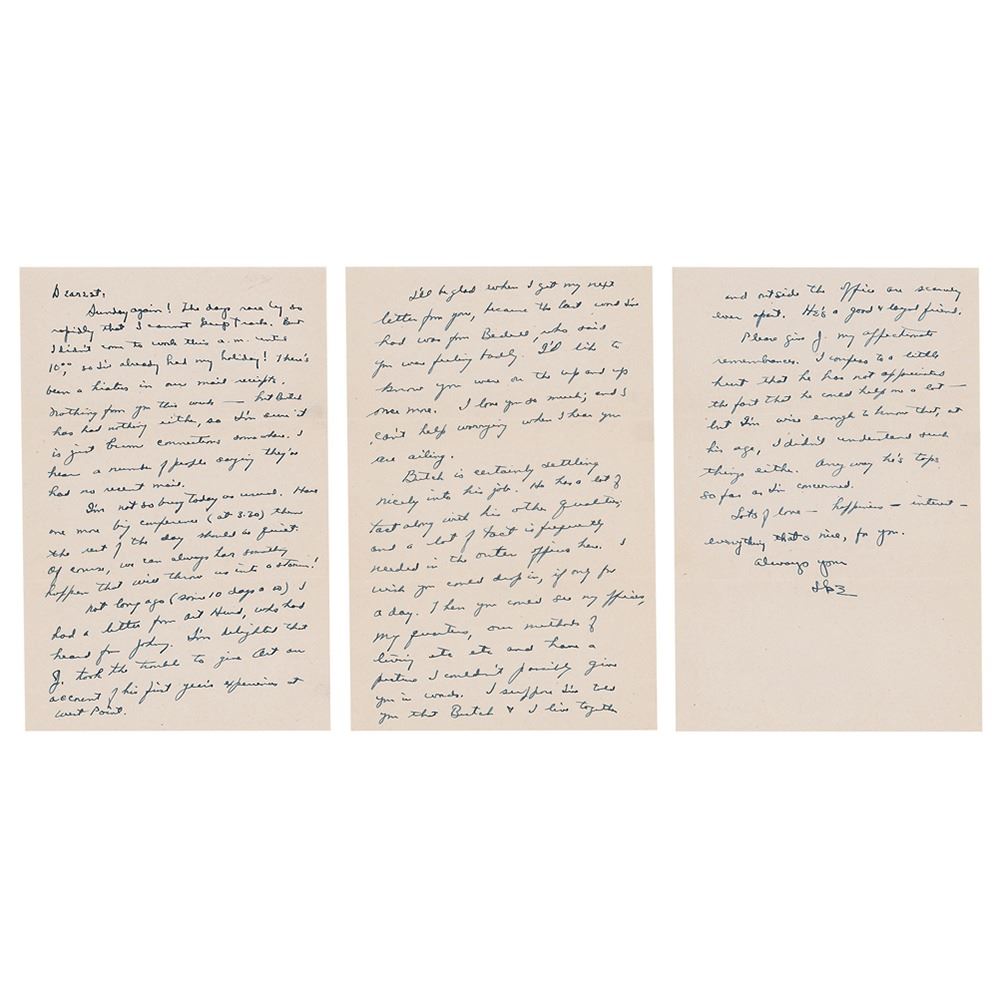 Dearest,
Sunday again! The days race by so
rapidly that I cannot keep track. But
I didn't come to work this a.m. until
10:00, so I've already had my holiday! There's
been a hiatus in our mail receipts.
Nothing from you this week — but Butch
has had nothing either, so I'm sure it
is just bum connections somewhere. I
hear a number of people saying they've
had no recent mail.
I'm not so busy today as usual. Have
one more big conference (at 3:30) then
the rest of the day should be quiet.
Of course, we can always have something
happen that will throw us into a storm!
Not long ago (some 10 days or so) I
had a letter from Art Hurd, who had
heard from Johnny. I'm delighted that
J. took the trouble to give Art an
account of his first year's experiences at
West Point.
I'll be glad when I get my next
letter from you, because the last word I've
had was from Bedell, who said
you was feeling badly. I'd like to
know you were on the up and up
once more. I love you so much; and I
can't help worrying when I hear you
are ailing.
Butch is certainly settling
nicely into his job. He has a lot of
tact along with his other qualities,
and a lot of tact is frequently
needed in the outer office here. I
wish you could drop in, if only for
a day. Then you could see my offices,
my quarters, our methods of
living etc etc and have a
picture I couldn't possibly give
you in words. I suppose I've told
you that Butch & I live together
and outside the office are scarcely
ever apart. He's a good & loyal friend.
Please give J. my affectionate
remembrances. I confess to a little
hurt that he has not appreciated
the fact that he could help me a lot —
but I'm wise enough to know that, at
his age, I didn't understand such
things either. Any way he's tops
so far as I'm concerned.
Lots of love — happiness — interest —
everything that's nice, for you.
Always your
Ike